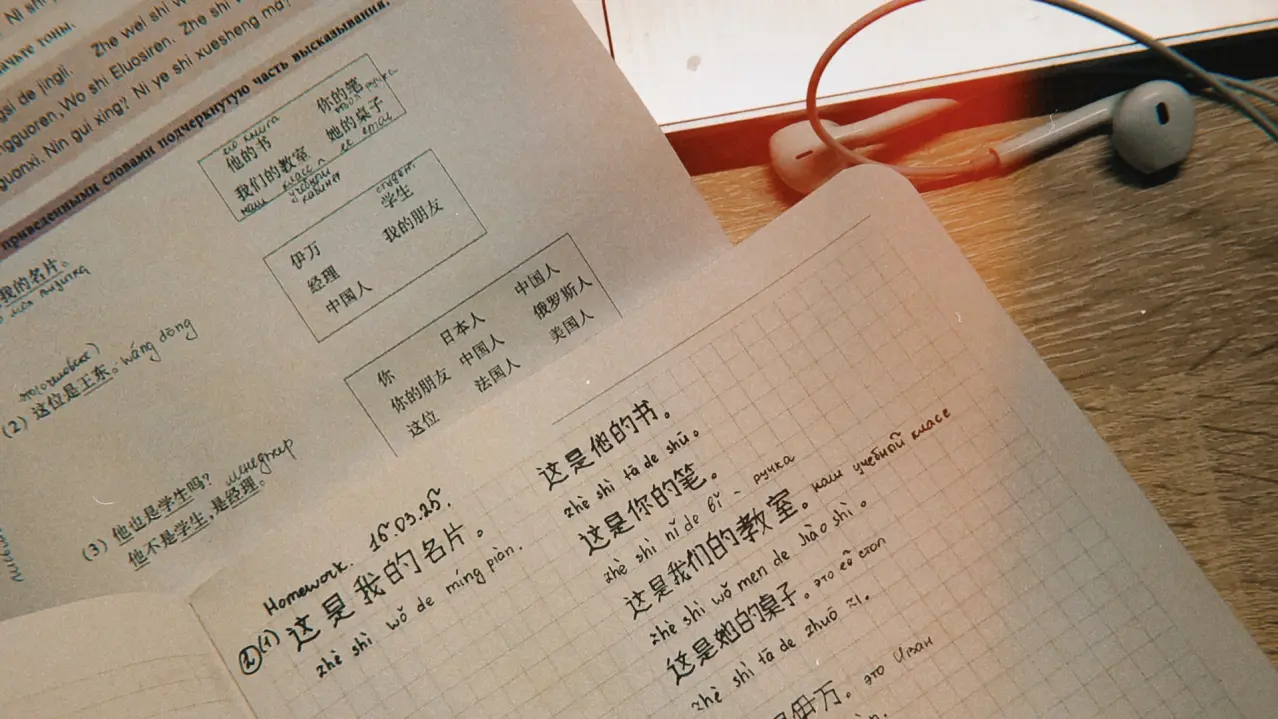 . Ni shi
ачьте тоны.
gsi de jingli. Zhe wei shi w
ngguoren, Wo shi Eluosiren. Zhe shi
guanxi. Nin gui xing? Ni ye shi xuesheng ma?
приведенными словами подчеркнутую часть высказывания.
его книга
他的书 你的笔
твоя ручка
我们的教室 她的桌子
наш класс ее стол
учебный
кабинет
студент
伊万 学生
经理 我的朋友
中国人
你 日本人 中国人
你的朋友 中国人 俄罗斯人
这位 法国人 美国人
我的名片。
моя визитка
(2) 这位是王东。wáng dōng
(3) 他也是学生吗? менеджер
他不是学生,是经理。
Homework. 16.03.25.
② (1) 这是我的名片。
zhè shì wǒ de míng piàn.
这是他的书。
zhè shì tā de shū。
这是你的笔。
zhè shì nǐ de bǐ - ручка
这是我们的教室。 наш учебный класс
zhè shì wǒ men de jiào shì。
这是她的桌子. это её стол
zhè shì tā de zhuō zi.
是伊万。 это Иван